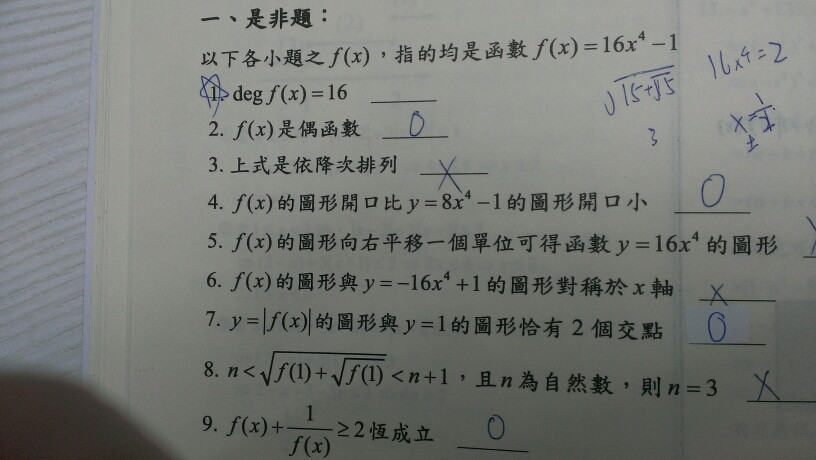 一、是非題：
以下各小題之 f(x)，指的均是函數 f(x)=16x⁴−1
16x⁴=2
1. deg f(x)=16 ____
√(15+√15)
3
2. f(x)是偶函數 O
3. 上式是依降次排列 X
4. f(x)的圖形開口比 y=8x⁴−1的圖形開口小 O
5. f(x)的圖形向右平移一個單位可得函數 y=16x⁴ 的圖形
6. f(x)的圖形與 y=−16x⁴+1的圖形對稱於 x 軸 X
7. y=|f(x)|的圖形與 y=1的圖形恰有 2 個交點 O
8. n<√(f(1)+√f(1))<n+1，且n為自然數，則n=3 X
9. f(x)+1/f(x)≥2恆成立 O